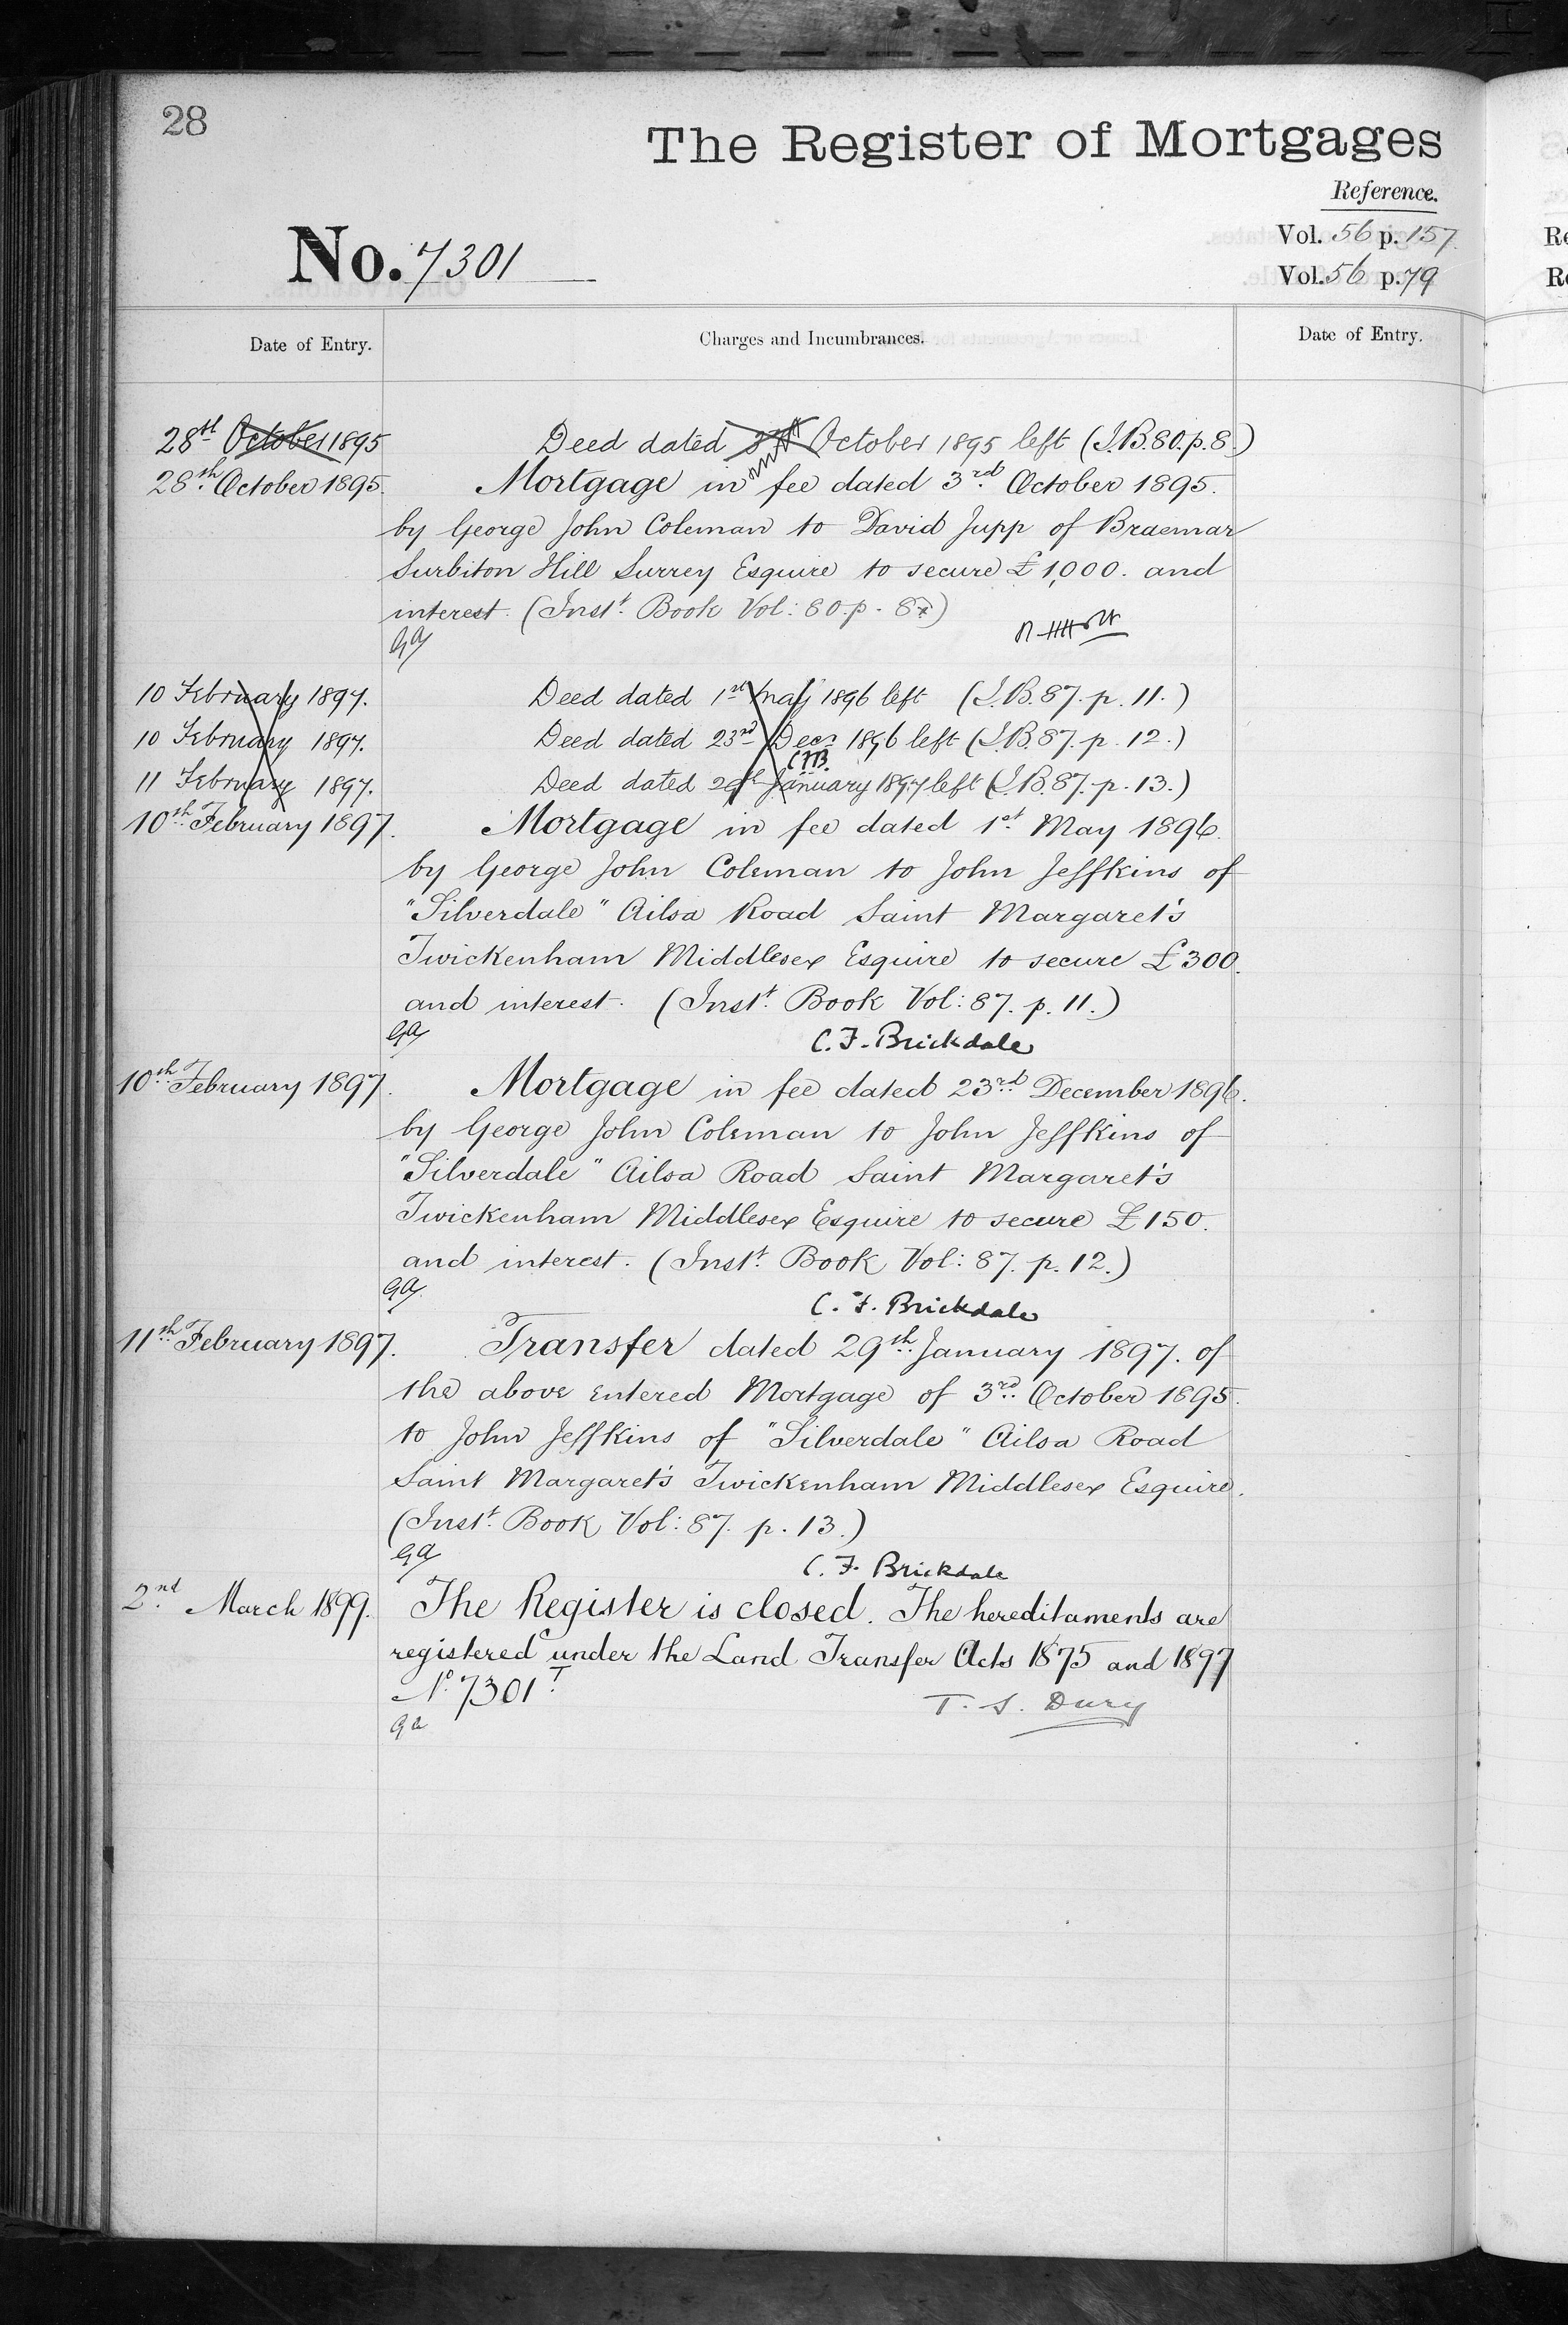 28
The Register of Mortgages
Reference.
No. 7301
Vol. 56 p. 157
Vol. 56 p. 79
Date of Entry.
Charges and Incumbrances.
Date of Entry.
28st October 1895 Deed dated October 1895 left (I.B. 80. p. 8.)
28th October 1895. Mortgage in fee dated 3rd October 1895.
by George John Coleman to David Jupp of Braemar
Surbiton Hill Surrey Esquire to secure £1,000. and
interest. (Inst. Book Vol: 80. p. 8)
GA
10 February 1897. Deed dated 1st May 1896 left (I.B. 87. p. 11.)
10 February 1897. Deed dated 23rd Decr 1896 left (I.B. 87. p. 12.)
CFB.
11 February 1897. Deed dated 29th January 1897 left (I.B. 87. p. 13.)
10th February 1897. Mortgage in fee dated 1st May 1896.
by George John Coleman to John Jeffkins of
"Silverdale" Ailsa Road Saint Margaret's
Twickenham Middlesex Esquire to secure £300.
and interest. (Inst. Book Vol: 87. p. 11.)
GA
C. F. Brickdale
10th February 1897. Mortgage in fee dated 23rd December 1896.
by George John Coleman to John Jeffkins of
"Silverdale" Ailsa Road Saint Margaret's
Twickenham Middlesex Esquire to secure £150.
and interest. (Inst. Book Vol: 87. p. 12.)
GA
C. F. Brickdale
11th February 1897. Transfer dated 29th January 1897. of
the above entered Mortgage of 3rd October 1895.
to John Jeffkins of "Silverdale" Ailsa Road
Saint Margaret's Twickenham Middlesex Esquire.
(Inst. Book Vol: 87. p. 13.)
GA
C. F. Brickdale
2nd March 1899. The Register is closed. The hereditaments are
registered under the Land Transfer Acts 1875 and 1897
No. 7301T.
T. S. Dury
Ga